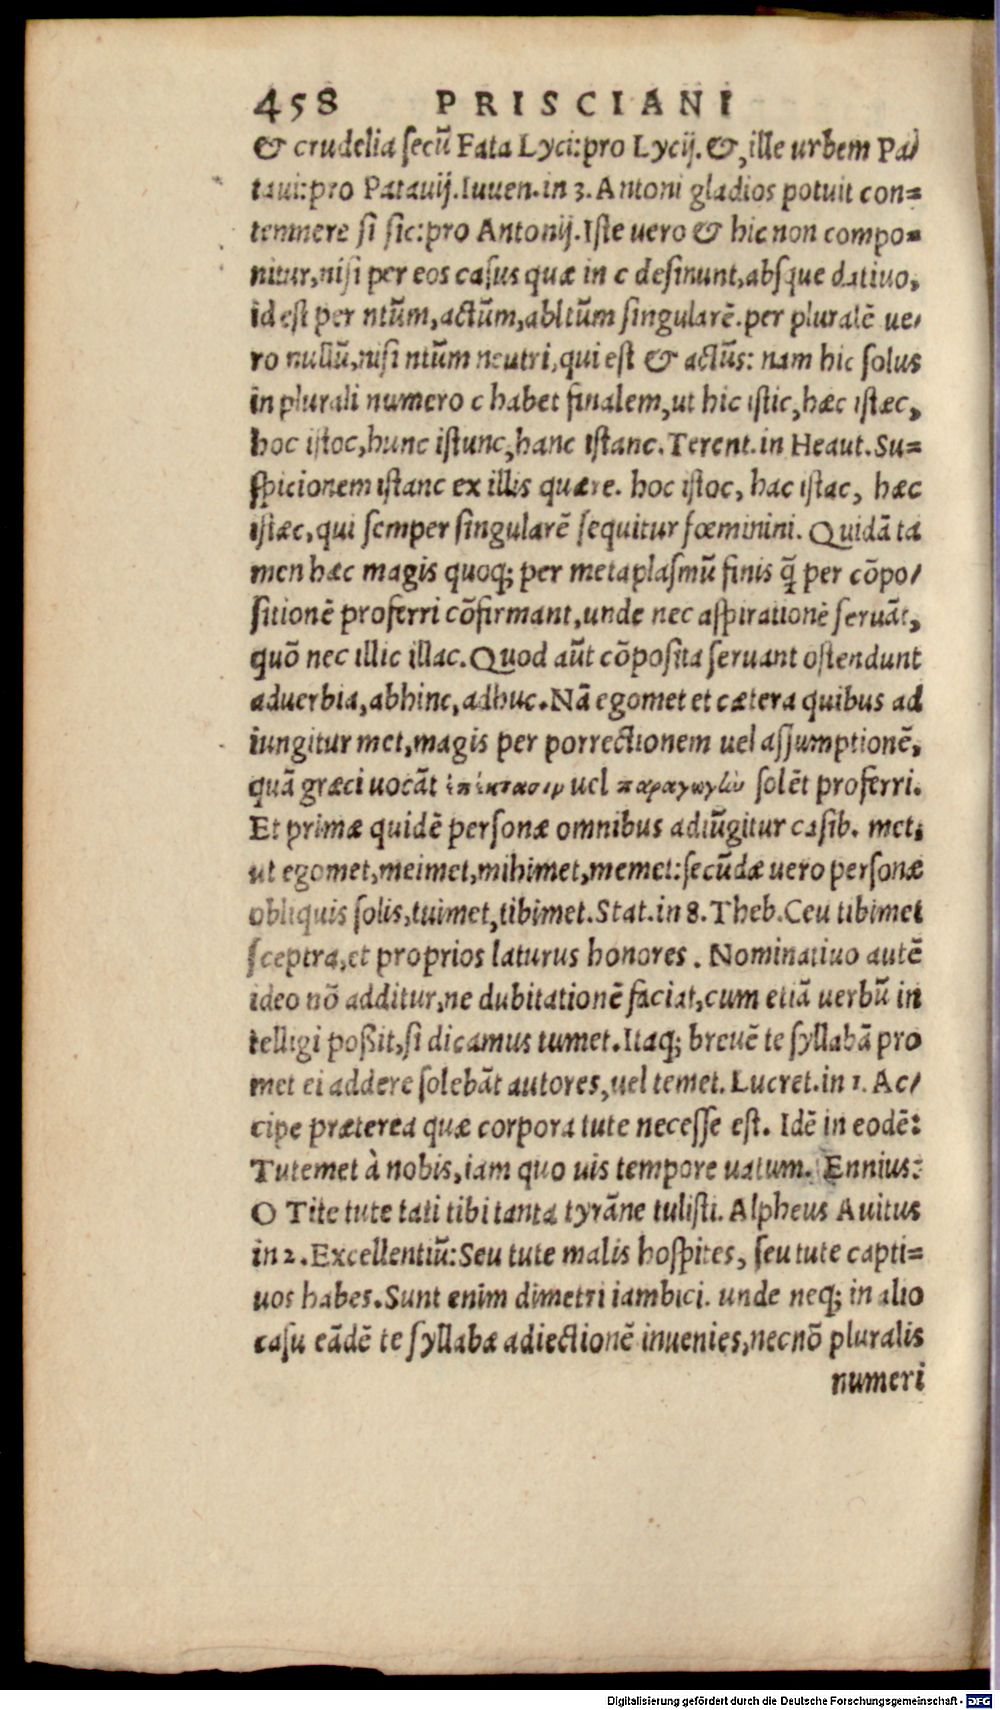 458 PRISCIANI
& crudelia secũ Fata Lyci: pro Lycij. &, ille urbem Pa/
taui: pro Patauij. Iuuen. in 3. Antoni gladios potuit con=
temnere si sic: pro Antonij. Iste uero & hic non compo=
nitur, nisi per eos casus quæ in c desinunt, absque datiuo,
id est per ntũm, actũm, abltũm singularẽ. per pluralẽ ue/
ro nullũ, nisi ntũm neutri, qui est & actũs: nam hic solus
in plurali numero c habet finalem, ut hic istic, hæc istæc,
hoc istoc, hunc istunc, hanc istanc. Terent. in Heaut. Su=
spicionem istanc ex illis quære. hoc istoc, hac istac, hæc
istæc, qui semper singularẽ sequitur fœminini. Quidã ta
men hæc magis quoq; per metaplasmũ finis q̃ per cõpo/
sitionẽ proferri cõfirmant, unde nec aspirationẽ seruãt,
quõ nec illic illac. Quod aũt cõposita seruant ostendunt
aduerbia, abhinc, adhuc. Nã egomet et cætera quibus ad
iungitur met, magis per porrectionem uel assumptionẽ,
quã græci uocãt ἐπέκτασιν uel παραγωγὴν solẽt proferri.
Et primæ quidẽ personæ omnibus adiũgitur casib. met,
ut egomet, meimet, mihimet, memet: secũdæ uero personæ
obliquis solis, tuimet, tibimet. Stat. in 8. Theb. Ceu tibimet
sceptra, et proprios laturus honores. Nominatiuo autẽ
ideo nõ additur, ne dubitationẽ faciat, cum etiã uerbũ in
telligi poßit, si dicamus tumet. Itaq; breuẽ te syllabã pro
met ei addere solebãt autores, uel temet. Lucret. in 1. Ac/
cipe præterea quæ corpora tute necesse est. Idẽ in eodẽ:
Tutemet à nobis, iam quo uis tempore uatum. Ennius:
O Tite tute tati tibi tanta tyrãne tulisti. Alpheus Auitus
in 2. Excellentiũ: Seu tute malis hospites, seu tute capti=
uos habes. Sunt enim dimetri iambici. unde neq; in alio
casu eãdẽ te syllabæ adiectionẽ inuenies, necnõ pluralis
numeri
Digitalisierung gefördert durch die Deutsche Forschungsgemeinschaft - DFG